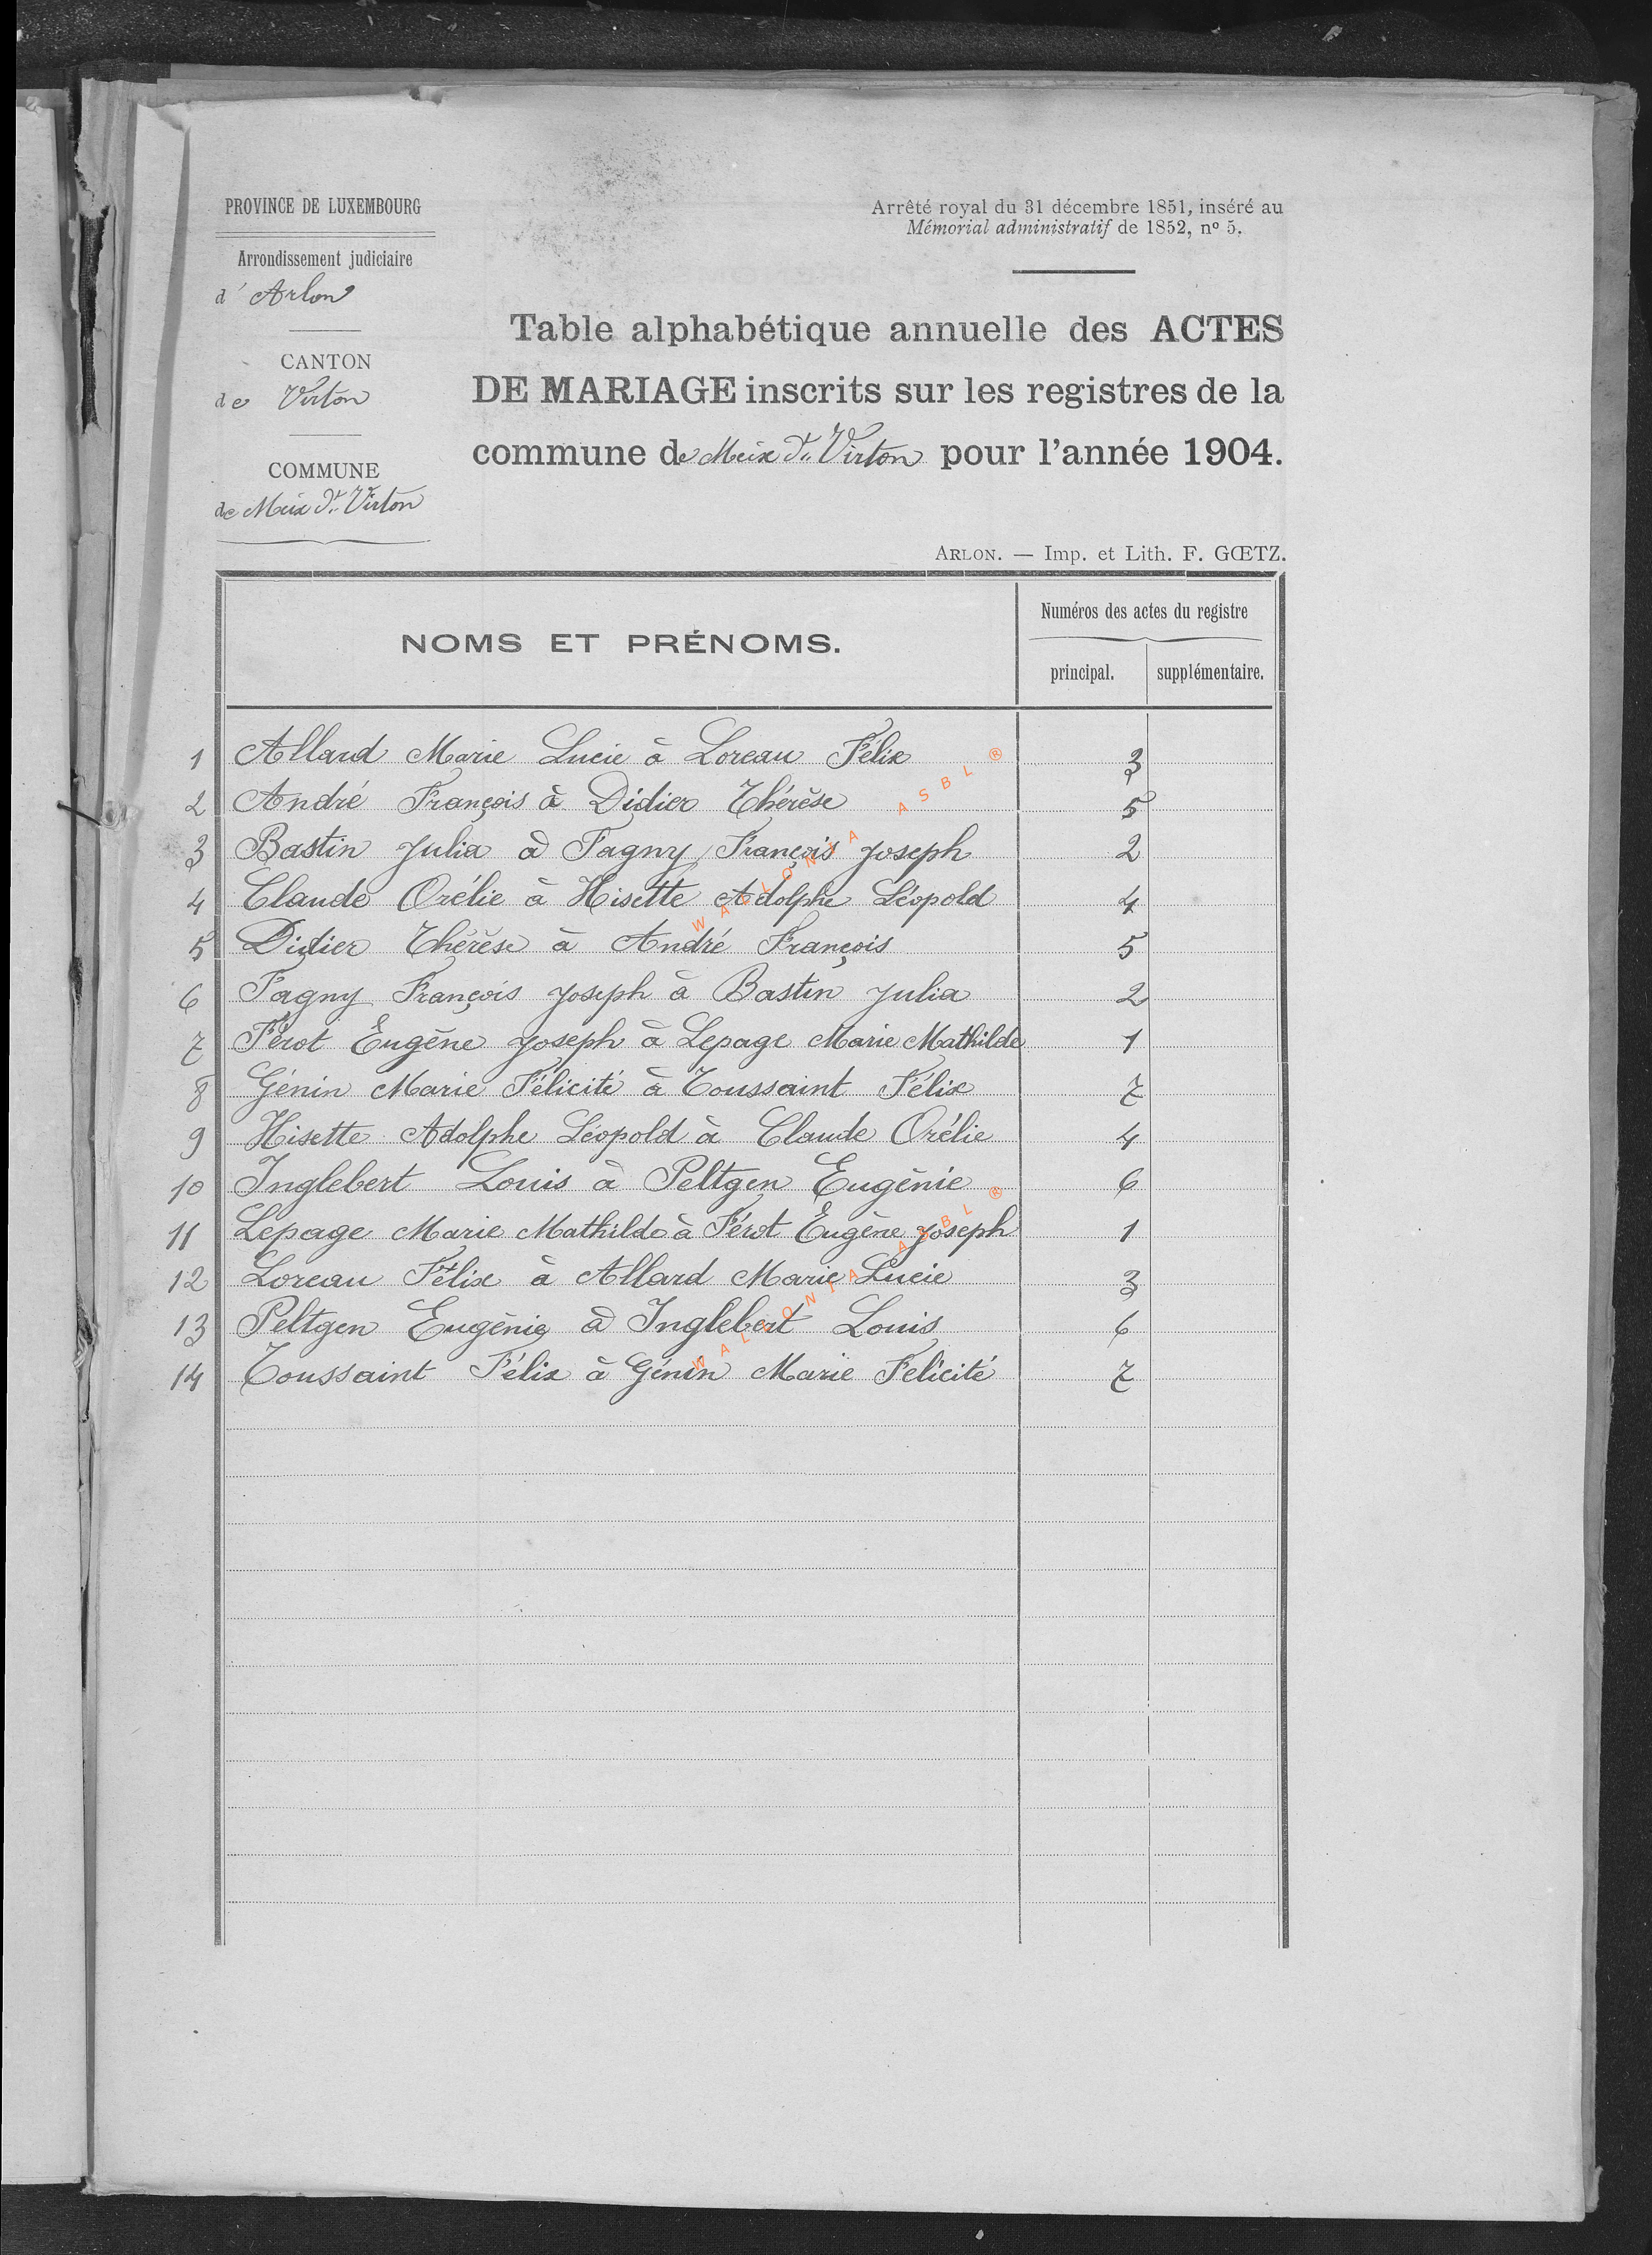 PROVINCE DE LUXEMBOURG
Arrondissement judiciaire
d'Arlon
CANTON
de Virton
COMMUNE
de Meix dt Virton
Arrêté royal du 31 décembre 1851, inséré au
Mémorial administratif de 1852, nº 5.
Table alphabétique annuelle des ACTES
DE MARIAGE inscrits sur les registres de la
commune de Meix dt Virton pour l'année 1904.
ARLON. — Imp. et Lith. F. GŒTZ.
NOMS ET PRÉNOMS.
Numéros des actes du registre
principal. supplémentaire.
1 Allard Marie Lucie à Loreau Félix 3
2 André François à Didier Thérèse 5
3 Bastin Julia à Fagny François Joseph 2
4 Claude Orélie à Hisette Adolphe Léopold 4
5 Didier Thérèse à André François 5
6 Fagny François Joseph à Bastin Julia 2
7 Férot Eugène Joseph à Lepage Marie Mathilde 1
8 Génin Marie Félicité à Toussaint Félix 7
9 Hisette Adolphe Léopold à Claude Orélie 4
10 Inglebert Louis à Peltgen Eugénie 6
11 Lepage Marie Mathilde à Férot Eugène Joseph 1
12 Loreau Félix à Allard Marie Lucie 3
13 Peltgen Eugénie à Inglebert Louis 6
14 Toussaint Félix à Génin Marie Felicité 7
WALLONIA ASBL ®
WALLONIA ASBL ®